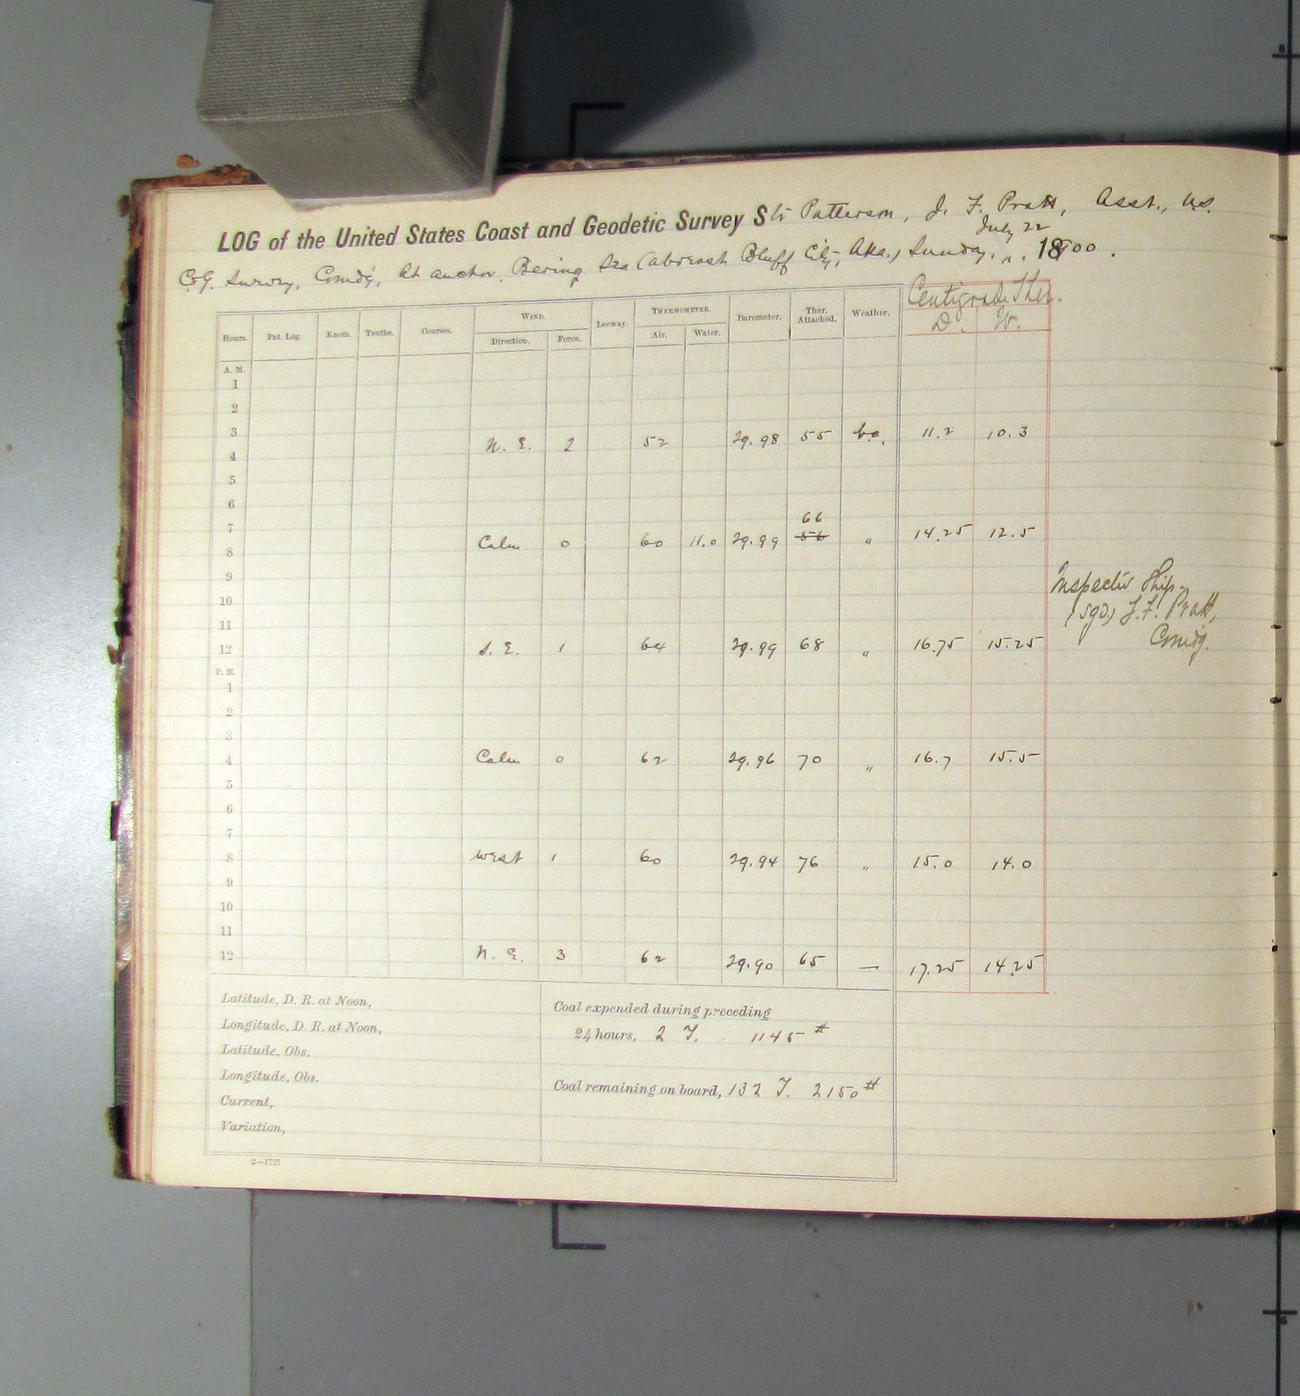 LOG of the United States Coast and Geodetic Survey Str Patterson, J. F. Pratt, Asst., U.S.
July 22
C.&G. Survey, Comdg., At anchor, Bering Sea (abreast Bluff City, Aka.) Sunday, 1900.
Centigrade Ther.
D. W.
Hours. Pat. Log. Knots. Tenths. Courses. WIND. Leeway. THERMOMETER. Barometer. Ther. Attached. Weather.
Direction. Force. Air. Water.
A. M.
1
2
3
4 N. E. 2 52 29.98 55 bc. 11.2 10.3
5
6
7 66
8 Calm 0 60 11.0 29.99 56 " 14.25 12.5
9
10
11
12 S. E. 1 64 29.99 68 " 16.75 15.25
Inspectiv Ship.
(sgd) J. F. Pratt,
Comdg.
P. M.
1
2
3
4 Calm 0 62 29.96 70 " 16.7 15.5
5
6
7
8 West 1 60 29.94 76 " 15.0 14.0
9
10
11
12 N. E. 3 62 29.90 65 — 17.25 14.25
Latitude, D. R. at Noon,
Longitude, D. R. at Noon,
Latitude, Obs.
Longitude, Obs.
Current,
Variation,
Coal expended during preceding
24 hours, 2 T. 1145 #
Coal remaining on board, 132 T. 2150 #
2—1727